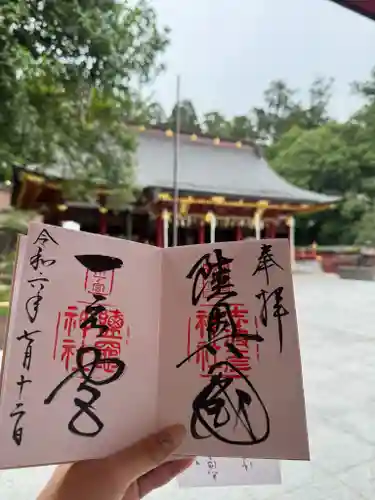 奉拝
陸奥國
志波彦神社
一之宮
鹽竈神社
令和六年七月十二日